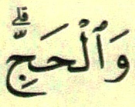 وَٱلْحَجِّۗ